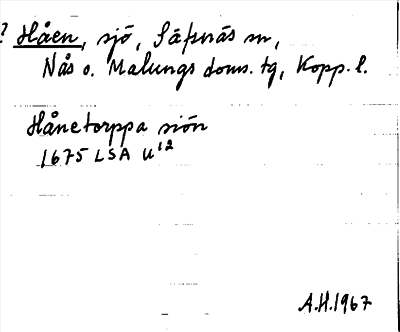 ? Håen, sjö, Säfsnäs sn,
Nås o. Malungs doms. tg, Kopp. l.
Hånetorppa siön
1675 LSA U¹²
A.H. 1967